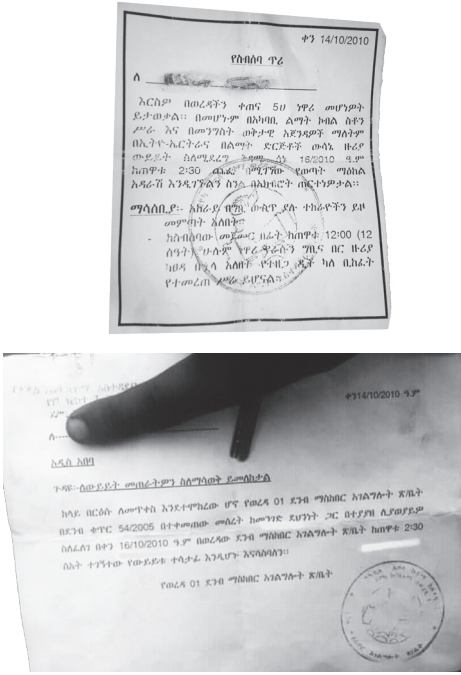 ቀን 14/10/2010
የስብሰባ ጥሪ
ለ
እርስዎ በወረዳችን ቀጠና 5ህ ነዋሪ መሆነዎት
ይታወቃል። በመሆኑም በአካባቢ ልማት ኮብል ስቶን
ሥራ እና በመንግስት ወቅታዊ አጀንዳዎች ማለትም
በኢትዮ-ኤርትራና በልማት ድርጅቶች ውሳኔ ዙሪያ
ውይይት ስለሚደረግ ሰኔ 16/2010 ዓ.ም
ከጠዋቱ 2:30 በሚገኘው የወጣት ማዕከል
አዳራሽ እንዲገኙልን ስንል በአክብሮት ጠርተነዎታል።
ማሳሰቢያ፡- አከራይ በግቢ ውስጥ ያሉ ተከራዮችን ይዞ
መምጣት አለበት።
- ከስብሰባው በፊት ከጠዋቱ 12:00 (12
ሰዓት) ሁሉም ነዋሪ ግቢና በር ዙሪያ
ካለ ቢከፈት
የተመረጠ ሥራ ይሆናል።
ቀን14/10/2010 ዓ.ም
ለ
አዲስ አበባ
ጉዳዩ፡-ለውይይት መጠራትዎን ስለማሳወቅ ይመለከታል
ከላይ በርዕሱ ለመጥቀስ እንደተሞከረው ሆኖ የወረዳ 01 ደንብ ማስከበር አገልግሎት ጽ/ቤት
በደንብ ቁጥር 54/2005 በተቀመጠው መሰረት ከመንገድ ደህንነት ጋር በተያያዘ ሊያወያይዎ
ስለፈለገ በቀን 16/10/2010 ዓ.ም በወረዳው ደንብ ማስከበር አገልግሎት ጽ/ቤት ከጠዋቱ 2:30
ሰአት ተገኝተው የውይይቱ ተሳታፊ እንዲሆኑ እናሳስባለን።
የወረዳ 01 ደንብ ማስከበር አገልግሎት ጽ/ቤት